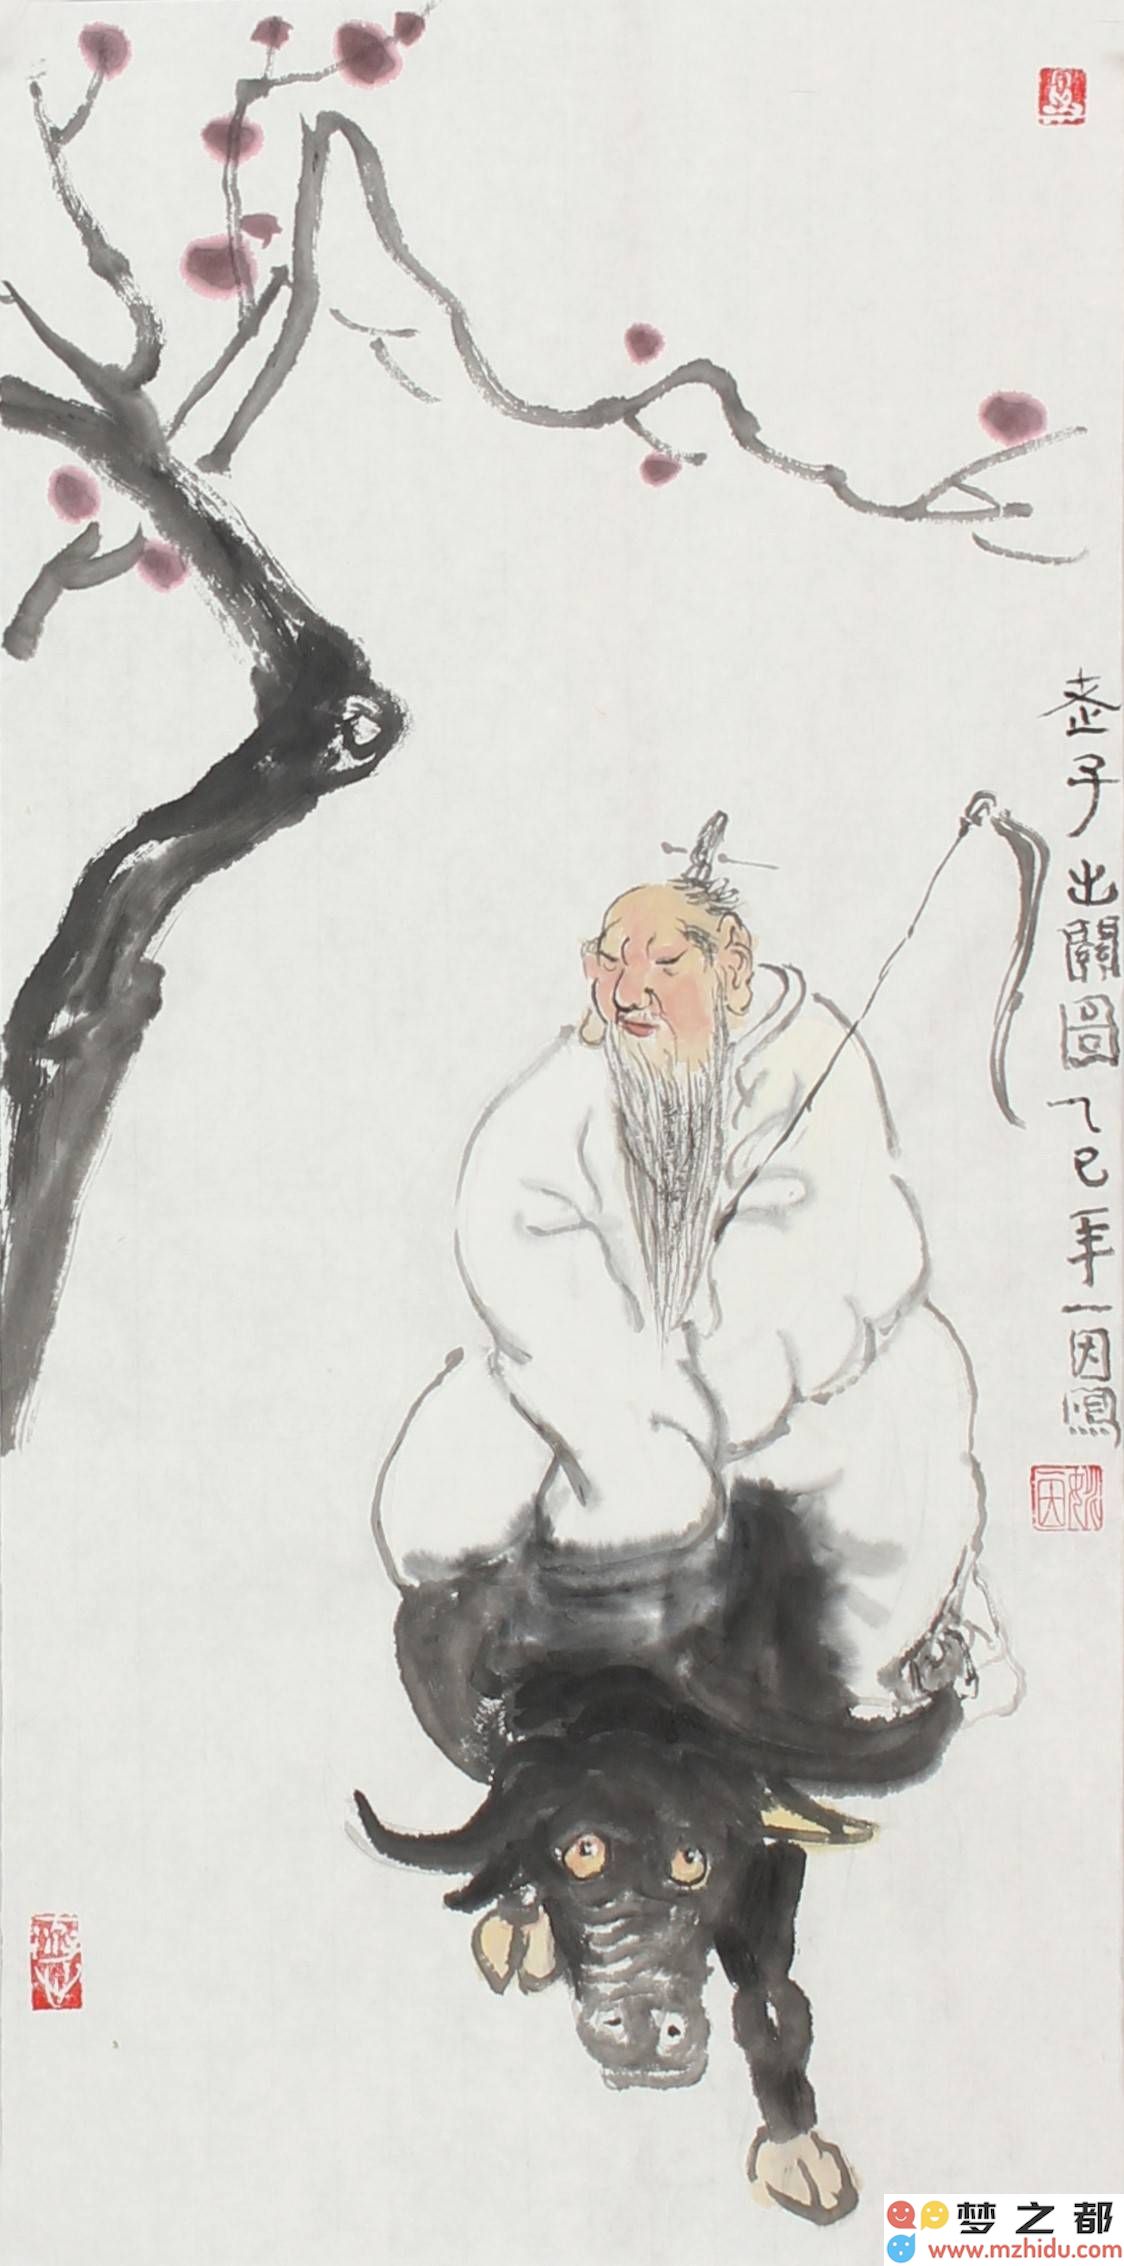 老子出關圖乙巳年一因寫
梦之都
www.mzhidu.com